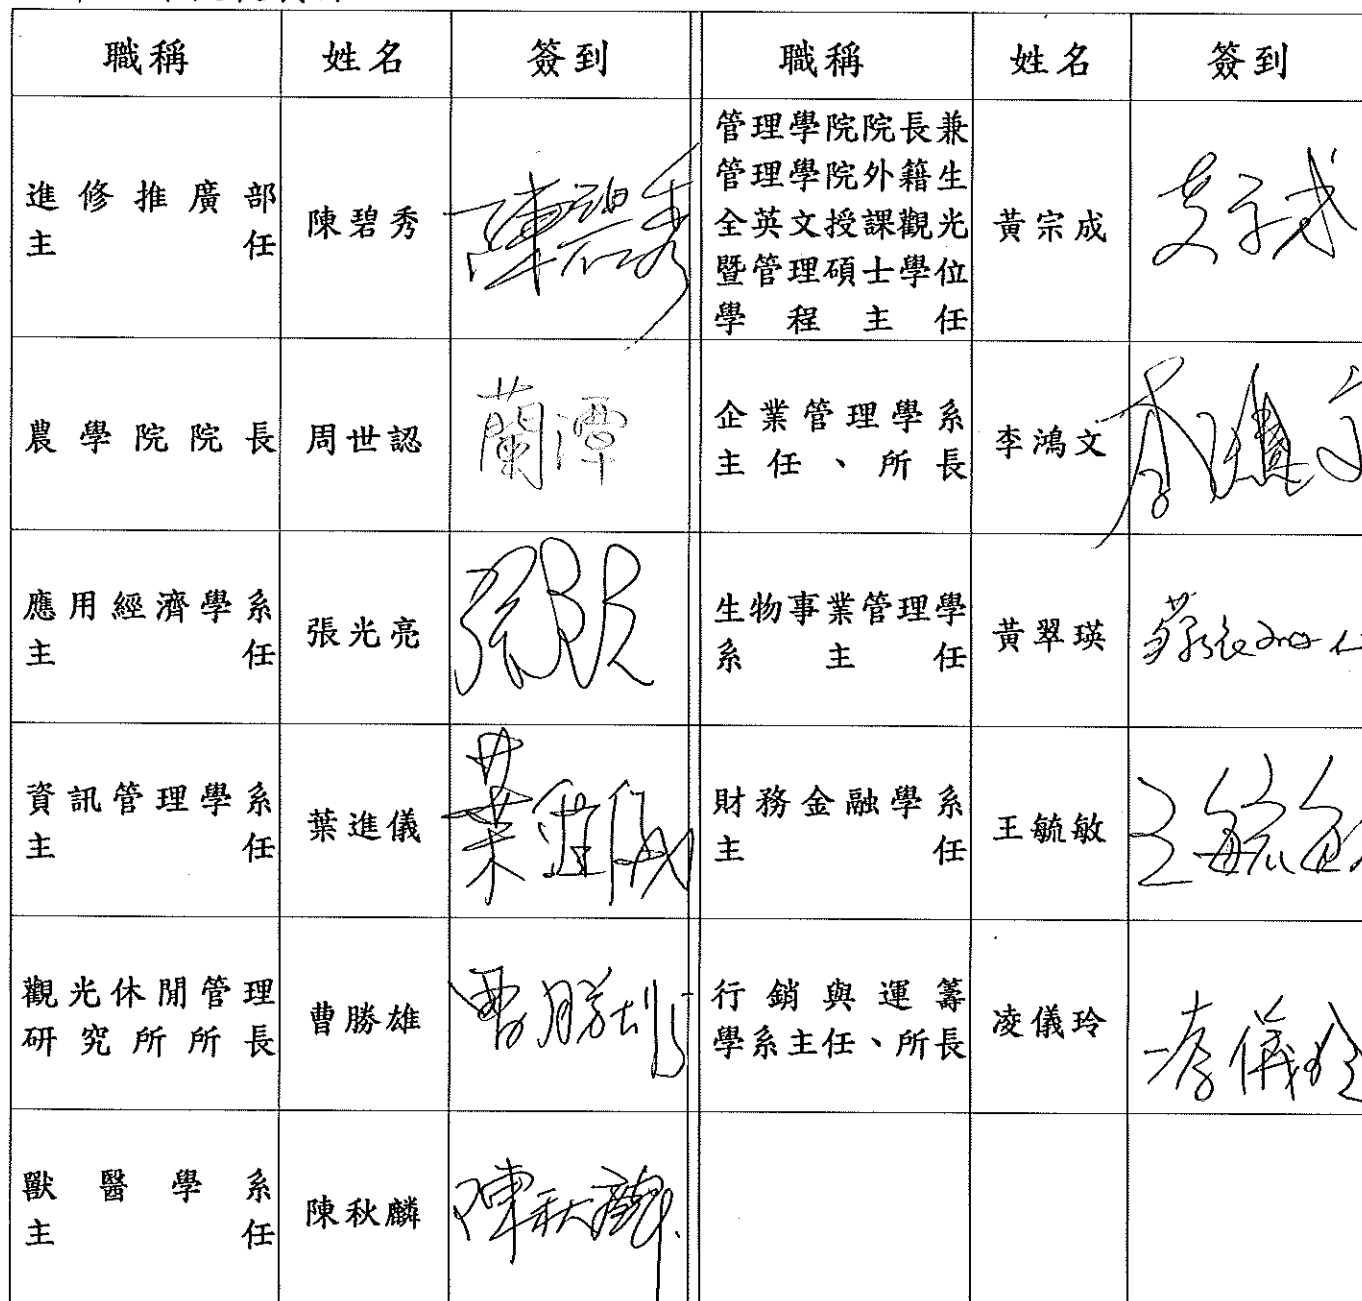 職稱 姓名 簽到 職稱 姓名 簽到
進修推廣部
主任
陳碧秀
陳碧秀
管理學院院長兼
管理學院外籍生
全英文授課觀光
暨管理碩士學位
學程主任
黃宗成
農學院院長
周世認
蘭潭
企業管理學系
主任、所長
李鴻文
李鴻文
應用經濟學系
主任
張光亮
生物事業管理學
系主任
黃翠瑛
資訊管理學系
主任
葉進儀
葉進儀
財務金融學系
主任
王毓敏
王毓敏
觀光休閒管理
研究所所長
曹勝雄
曹勝雄
行銷與運籌
學系主任、所長
凌儀玲
李儀玲
獸醫學系
主任
陳秋麟
陳秋麟